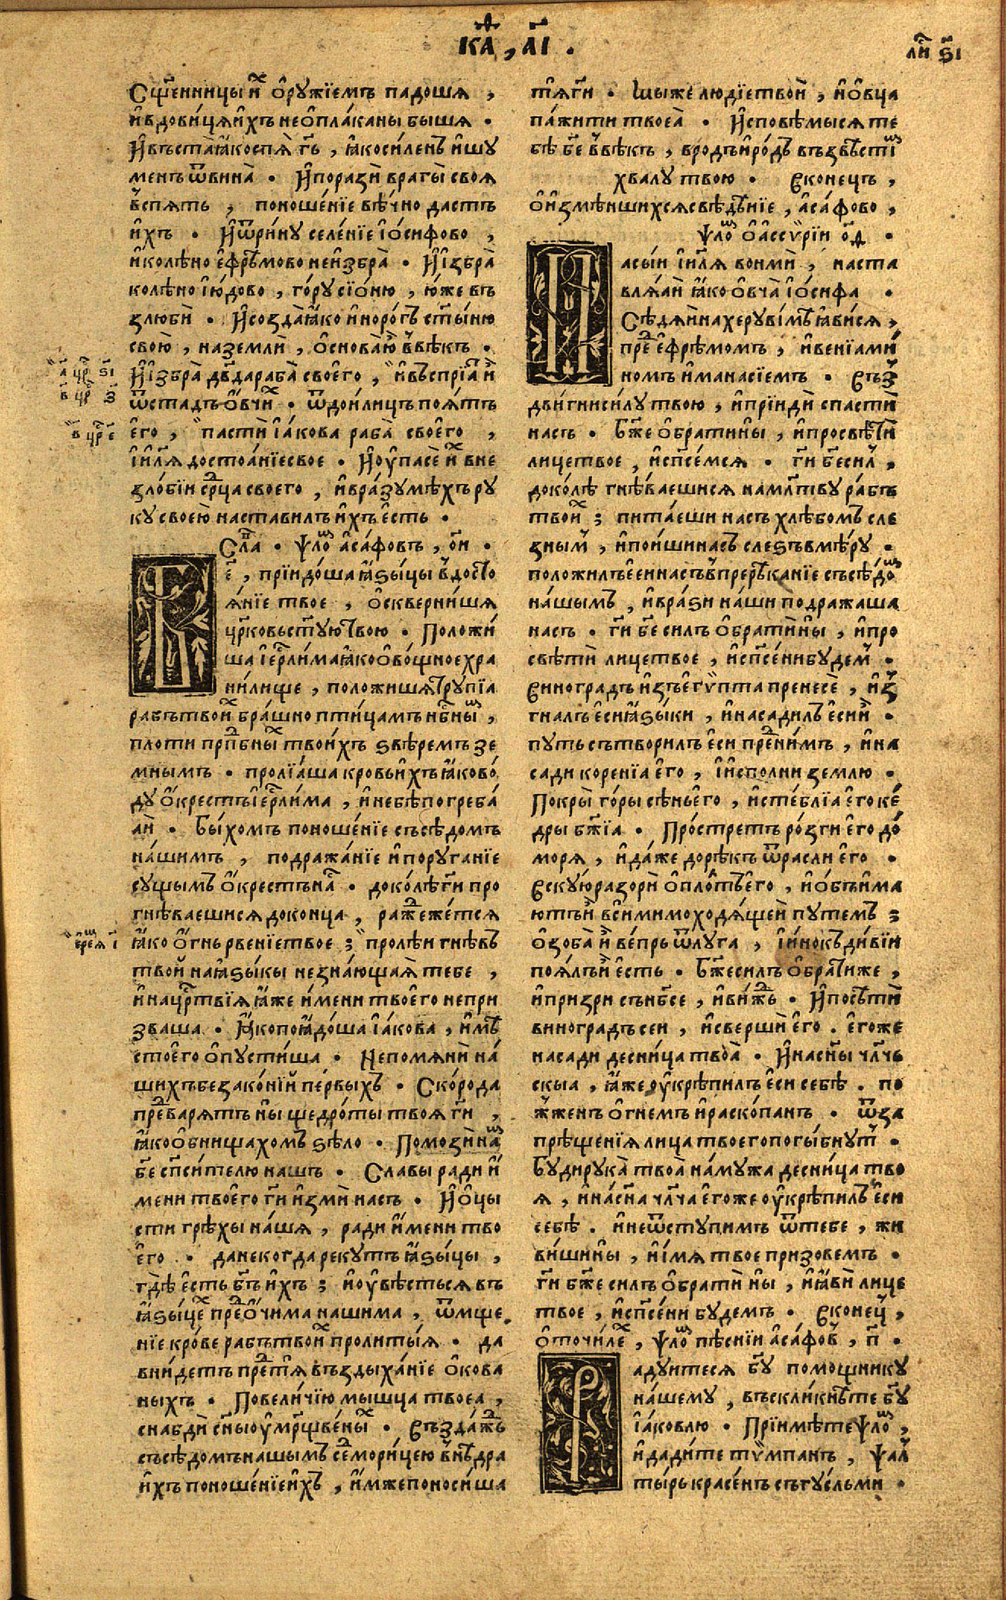 КА҃, АІ҃ .
ли҃ ѕ҃і
Сщ҃енницы и҆х ѻ҆рꙋжїемъ падоша ,
и҆вдови́цаи҆́хъ неѻ҆пла́каны бышѧ .
И҆въста̀ꙗ҆коспѧ гь , ꙗ҆коси́ленъ и҆шꙋ
менъ ѿвина̀ . И҆поразѝ врагы̀ своѧ
в҆спѧть , поноше́нїе вѣ́чно дастъ
и҆хъ . И҆ѿри́нꙋ селе́нїе іѻ҆́сифово ,
и҆колѣ́но є҆фре́мово неи҆збра̀ . И҆і҆збра̀
колѣ́но і҆ю́дово , го́рꙋ сїо́ню , ю҆́же въ
злюбѝ . И҆созда̀ꙗ҆́ко и҆норо́гъ ст҃ы́ню
свою̀ , наземлѝ , ѻ҆снова̀ю҆̀ в҆вѣкъ .
И҆і҆збра̀ дв҃дараба̀ своего̀ , и҆въспрїа́т и҆̀
ѿстадъ ѻ҆́вчи . ѿдои́лицъ поѧ́тъ
є҆го̀ , пастѝ і҆а́кова раба̀ своего̀ ,
і҆и҃лѧ достоа́нїесвое . И҆оу҆пасѐ и҆х вне
зло́бїи ср҃ца своего , и҆вра́зꙋмѣ́хъ рꙋ
кꙋ своею̀ наставилъ и҆́хъ є҆́сть .
а҃ цр҃ ѕ҃і
в҃ цр҃ з҃
в҃ цр҃ є҃
Сла . Ѱло́м а҆са́фовъ , ѻ҃и .
Б҃е , прїидо́ша ꙗ҆ѕы́цы в҆досто
ѧ́нїе твое , ѻ҆сквернишѧ
цр҃ковьст҃ꙋю҆твою . Положи́
ша і҆ер҃ли́маꙗ҆коѻ҆во́щноехра
ни́лище , положишѧтрꙋ́пїа
рабътвои́х бра́шно пти́цамъ нб҃ным ,
плоти прп҃бных твои́хъ ѕвѣремъ зе
мнымъ . пролїаша кровьи҆́хъ ꙗ҆ково́
дꙋ ѻ҆́крестъ і҆ер҃лима , и҆небѣ̀погреба́
аи̇̀ . Бы́хомъ поноше́нїе съсѣдомъ
на́шимъ , подража́нїе и҆порꙋганїе
сꙋщымъ ѻ҆́крестъ на́с . доко́лѣ гн҃и про
гнѣ́ваешисѧ доконца , раж̾же́тсѧ
ꙗ҆ко ѻ҆́гнь рве́нїетвое ; проле́и гнѣвъ
твой наꙗ҆ѕы́кы незна́ющаѧ тебе ,
є҆ре́ѧ і҃
и҆нацр҃твїѧ ꙗ҆́же и҆́мени твоего̀ непри
зваша . Ꙗ҆́копоꙗ҆до́ша і҆а́кова , и҆мѣ́
стоего̀ ѻ҆пꙋсти́ша . Непомѧнѝ на́
шихъбезако́нїй пе́рвыхъ . Ско́рода
пре҆варѧ́тъ ны̀ щедро́ты твоѧ гн҃и ,
ꙗ҆коѻ҆бнища́хомъ ѕѣло . Помозѝ на́м
б҃е сп҃си́телю нашъ . Славы ради и҆́
мени твоего̀ гн҃и и҆змѝ насъ . И҆ѻ҆цы
сти грѣ́хы на́шѧ , ради и҆́мени тво
є҆го . данекогда рекꙋтъ ꙗ҆ѕы́цы ,
гдѣ́ є҆́сть бг҃ъ и҆́хъ ; и҆оу҆вѣстьсѧ въ
ꙗ҆ѕы́цех пред ѻ҆чима нашима , ѿмще
нїе кро́ве рабътвои́х пролиты́ѧ . да
вни́детъ пред тѧ въздыха́нїе ѻ҆кова
ныхъ . Повели́чїю мышца твоеа ,
снабдѝ сн҃ыоу҆мрщ҃ве́ных . Въздаж̾дь
съсѣдомъ нашымъ седмори́цею в҆нѣ́дра
и҆хъ поноше́нїеи҆хъ , и҆́мжепоноси́ша
тѧ гн҃и . Мы́же лю́дїетвоѝ , и҆ѻ҆вца
па́жити твоеѧ̀ . И҆сповѣ́мысѧ те
бѣ̀ б҃е в҆вѣ́къ , вро́дъ и҆ро́дъ възвѣсти́м
хвалꙋ̀ твою̀ . Вконе́цъ ,
ѻ҆и҆змѣ́ншихсѧсвѣдѣ́нїе , а҆са́фово ,
ѱло́м ѻ҆ассѵрїи ѻ҃ѳ .
Пасыи і҆и҃лѧ вонмѝ , наста
влѧ́аи ꙗ҆ко ѻ҆вча̀ і҆ѻ́сифа .
Сѣдѧ́и нахерꙋві́мѣ̑ ꙗ҆ви́сѧ ,
пред є҆фре́момъ , и҆венїами́
номъ и҆манасїемъ . Въз̾
дви́гнисилꙋ твою , и҆прїидѝ спасти
насъ . Бж҃е ѻ҆брати́ны , и҆просвѣти̇̀
лицетвое , и҆сп҃се́мсѧ . гн҃и б҃есил ,
доко́лѣ гнѣ́ваешисѧ намл҃твꙋ ра́бъ
твои́х ; пита́еши насъ хлѣбомъ сле
зным , и҆пои́шинасъ слеѕъвмѣ́рꙋ .
положилъє҆сѝнасъвпререка́нїе съсѣ́дом
на́шымъ , и҆вра́ѕи на́ши подражаша
насъ . гн҃и б҃е силъ ѻ҆брати́ны , и҆про
свѣти̇̀ лицетвое , и҆сп҃се́нибꙋдем .
Виноградъ и҆зъє҆гѵпта пренесѐ , и҆з̾
гналъ є҆сѝꙗ҆ѕы́ки , и҆насадилъ є҆сѝи҆̀ .
пꙋть сътворилъ є҆си пред ни́мъ , и҆на
сади коренїа є҆го , и҆и҆спо́лни землю .
Покры̀ го́ры сѣньє҆го , и҆сте́блїа є҆го ке́
дры бж҃їа . Простретъ ро́зги є҆го до
морѧ , и҆да́же дорѣкъ ѿрасли є҆го .
Вскꙋюразорѝ ѻ҆пло́тъє҆го , и҆ѻ҆бъима
ютъи҆̀ всѝмимоходѧ́щеи пꙋтемъ ;
ѻ҆зоба̀ и҆̀ ве́прь ѿлꙋга , и҆и҆нокъди́вїи
поѧ́лъи҆̀ є҆сть . Бж҃есилъ ѻ҆брати́же ,
и҆призри съ нб҃се , и҆ви́ждь . И҆посѣтѝ
виноградъсеи , и҆сверши̇̀ є҆го . є҆гоже
насади десница твоа̀ . И҆насн҃ы чл҃чь
скыа , ꙗ҆́же оу҆крѣпилъ є҆си себѣ . по
ж̾женъ ѻ҆гнемъ и҆раско́панъ . ѿза
прѣще́нїѧ лица твоегопогы́бнꙋт .
Бꙋдирꙋка̀ твоа̀ на́мꙋжа десница тво
ѧ , и҆на́сн҃а чл҃ча є҆гоже оу҆крѣпилъ є҆си
себѣ . и҆неѿстꙋпимъ ѿтебе , жи
ви́шины , и҆и҆мѧ твое призовемъ .
гн҃и бж҃е силъ ѻ҆братѝ ны , и҆ꙗ҆вѝ лице
твое , и҆сп҃се́ни бꙋдемъ . Вконец ,
ѻ҆точи́лех , ѱло́м пѣ́сни а҆са́фов , п҃ .
Радꙋитесѧ б҃ꙋ помощникꙋ
на́шемꙋ , въскли́кнѣте б҃ꙋ
і҆а́ковлю . Прїимѣ́те ѱло́м ,
и҆дади́те тѵ́мпанъ , ѱал
ты́рь красе́нъ съгꙋ́сльми .